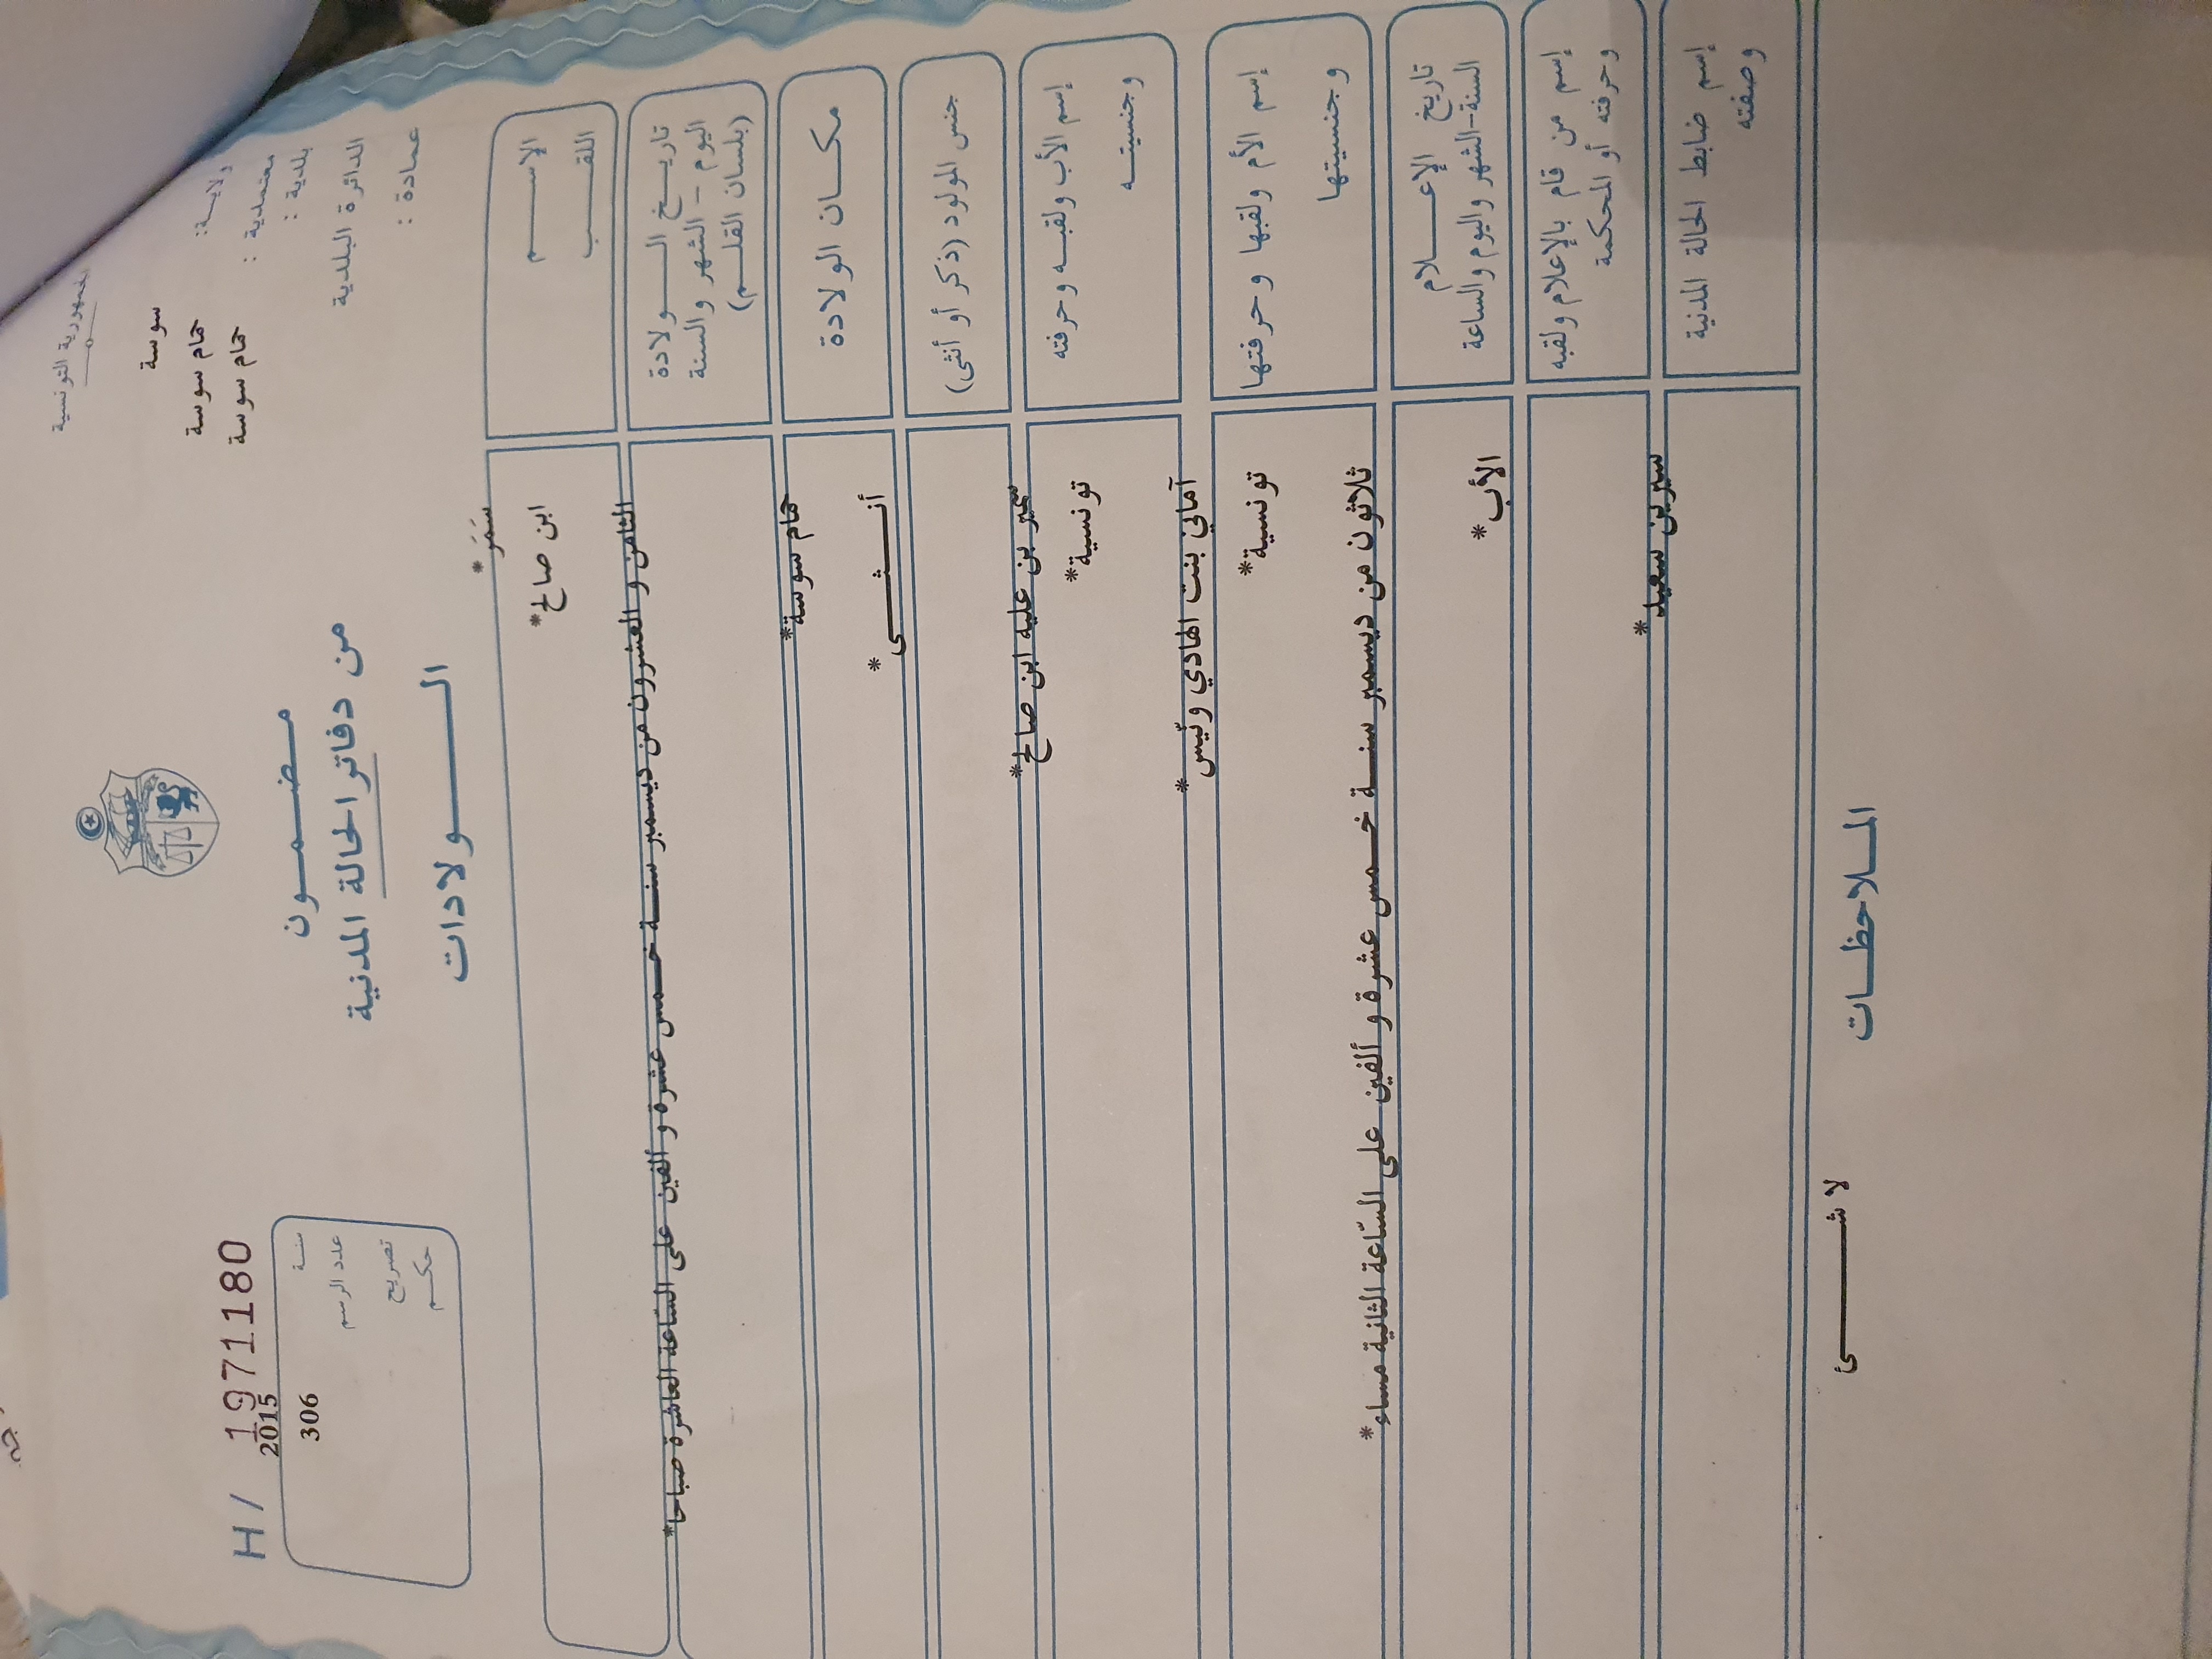 الجمهورية التونسية
ولاية: سوسة
معتمدية : حمام سوسة
بلدية : حمام سوسة
الدائرة البلدية
عمادة :
مضمون
من دفاتر الحالة المدنية
الولادات
H/ 1971180
سنة 2015
عدد الرسم 306
تصريح
حكم
الاسم
سَمَر*
اللقب
ابن صالح*
تاريخ الولادة
اليوم - الشهر والسنة
(بلسان القلم)
الثامن و العشرون من ديسمبر سنة خمس عشرة و ألفين على السّاعة العاشرة صباحا*
مكان الولادة
حمام سوسة*
جنس المولود (ذكر أو أنثى)
أنثى*
إسم الأب ولقبه وحرفته
سمير بن عليه ابن صالح*
وجنسيته
تونسية*
إسم الأم ولقبها وحرفتها
آماني بنت الهادي ونّيس*
وجنسيتها
تونسية*
تاريخ الإعلام
السنة-الشهر واليوم والساعة
ثلاثون من ديسمبر سنة خمس عشرة و ألفين على السّاعة الثانية مساء*
إسم من قام بالإعلام ولقبه
وحرفته أو المحكمة
الأب*
إسم ضابط الحالة المدنية
وصفته
سيرين سعيد*
الملاحظات
لا شئ